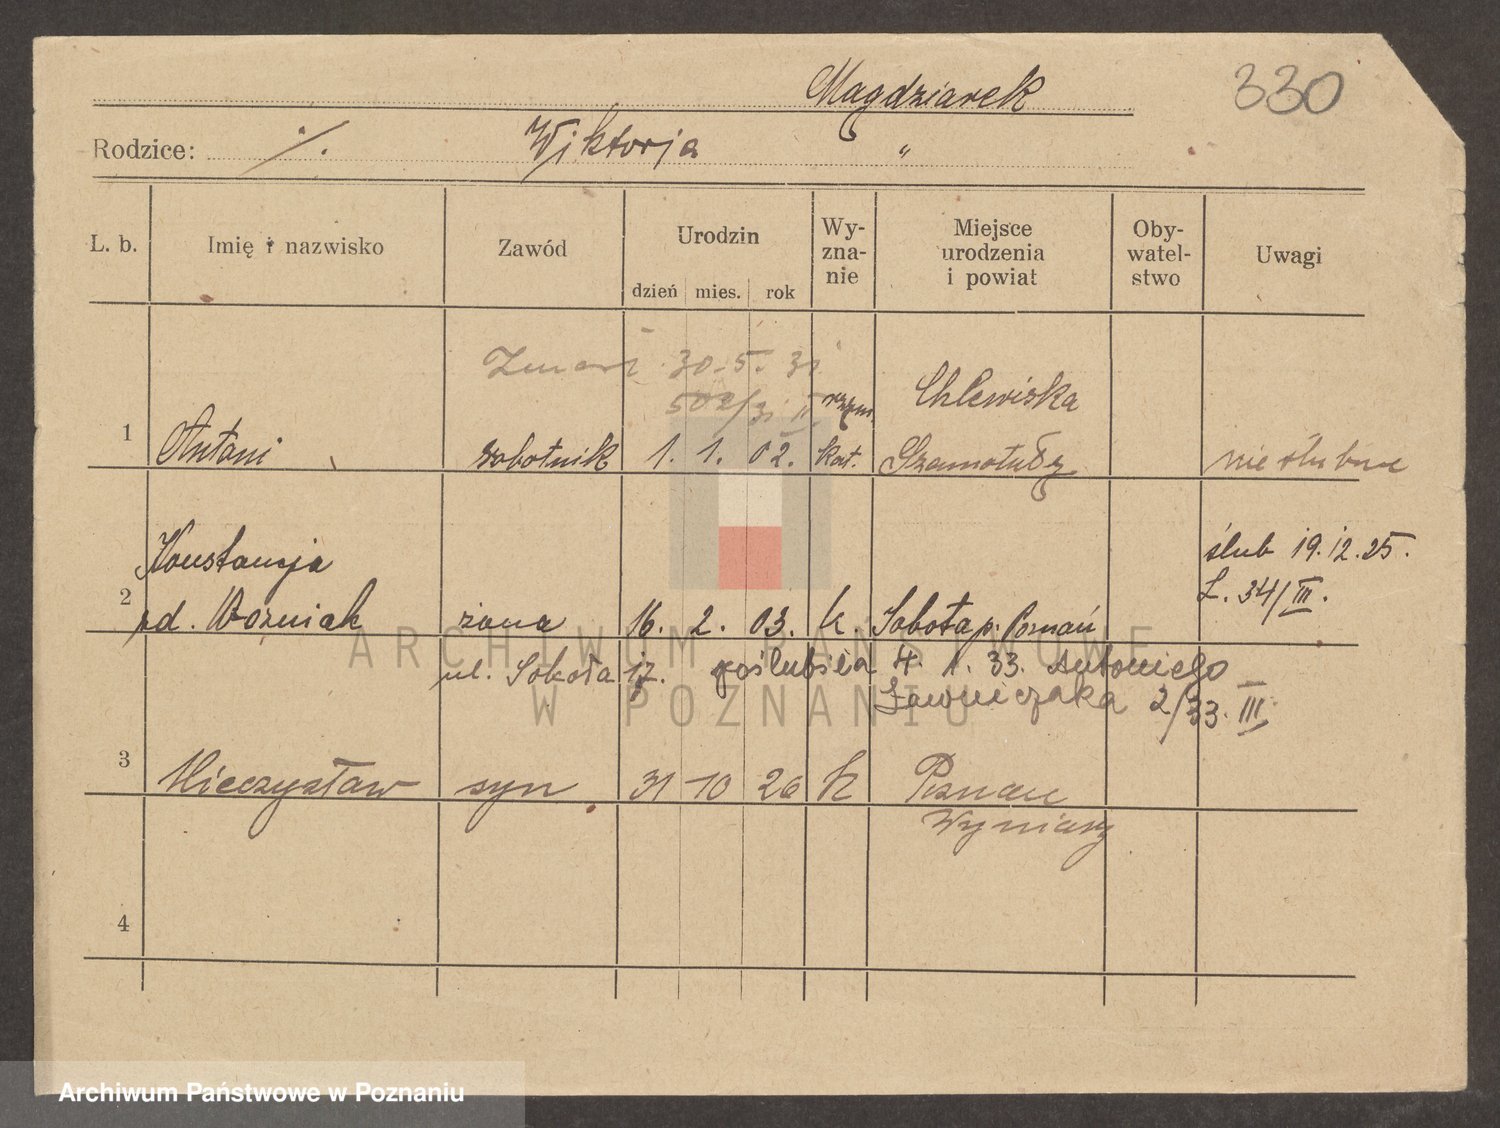 330
Magdziarek
Rodzice: ./. Wiktorja "
L. b. Imię i nazwisko Zawód Urodzin dzień mies. rok Wy-zna-nie Miejsce urodzenia i powiat Oby-watel-stwo Uwagi
Zmarł 30.5.31
502/31 II
rzym. Chlewiska
1 Antoni robotnik 1. 1. 02. kat. Szamotuły nieślubne
Konstancja ślub 19.12.25.
L. 34/III.
2 zd. Woźniak żona 16. 2. 03. k. Sobota p. Poznań
ul. Sokoła 17. poślubiła 4. 1. 33. Antoniego
Ławniczaka 2/33. III
3 Mieczysław syn 31 10 26 k Poznań
Wyniary
4
ARCHIWUM PAŃSTWOWE
W POZNANIU
Archiwum Państwowe w Poznaniu